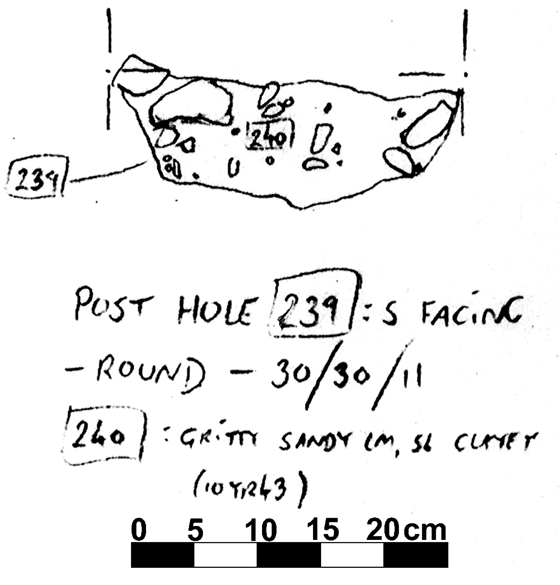 240
239
POST HOLE 239 : S FACING
- ROUND - 30/30/11
240 : GRITTY SANDY LM, SL CLAYEY
(10YR43)
0 5 10 15 20cm